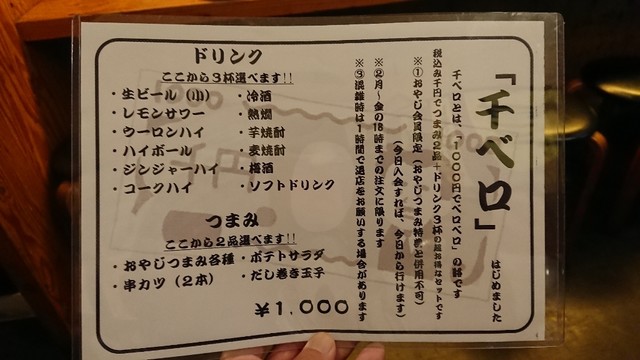 「千ベロ」
はじめました
千ベロとは、「1000円でベロベロ」の略です
税込み千円でつまみ2品+ドリンク3杯の超お得なセットです
※①おやじ会員限定(おやじつまみ特典と併用不可)
(今日入会すれば、今日から行けます)
※②月~金の18時までの注文に限ります
※③混雑時は1時間で退店をお願いする場合があります
ドリンク
ここから3杯選べます!!
・生ビール(小)
・レモンサワー
・ウーロンハイ
・ハイボール
・ジンジャーハイ
・コークハイ
・冷酒
・熱燗
・芋焼酎
・麦焼酎
・梅酒
・ソフトドリンク
つまみ
ここから2品選べます!!
・おやじつまみ各種
・串カツ(2本)
・ポテトサラダ
・だし巻き玉子
¥1,000